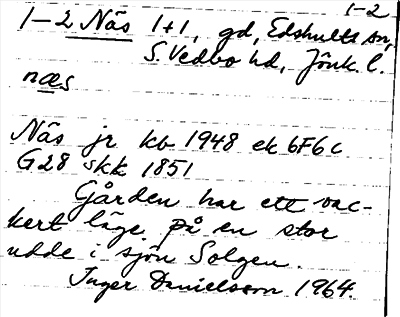 1-2
1-2 Näs 1+1, gd, Edshults sn,
S. Vedbo hd, Jönk. l.
næs
Näs jr kb 1948 ek 6F6c
G28 skk 1851
Gården har ett vac-
kert läge på en stor
udde i sjön Solgen.
Inger Danielsson 1964.